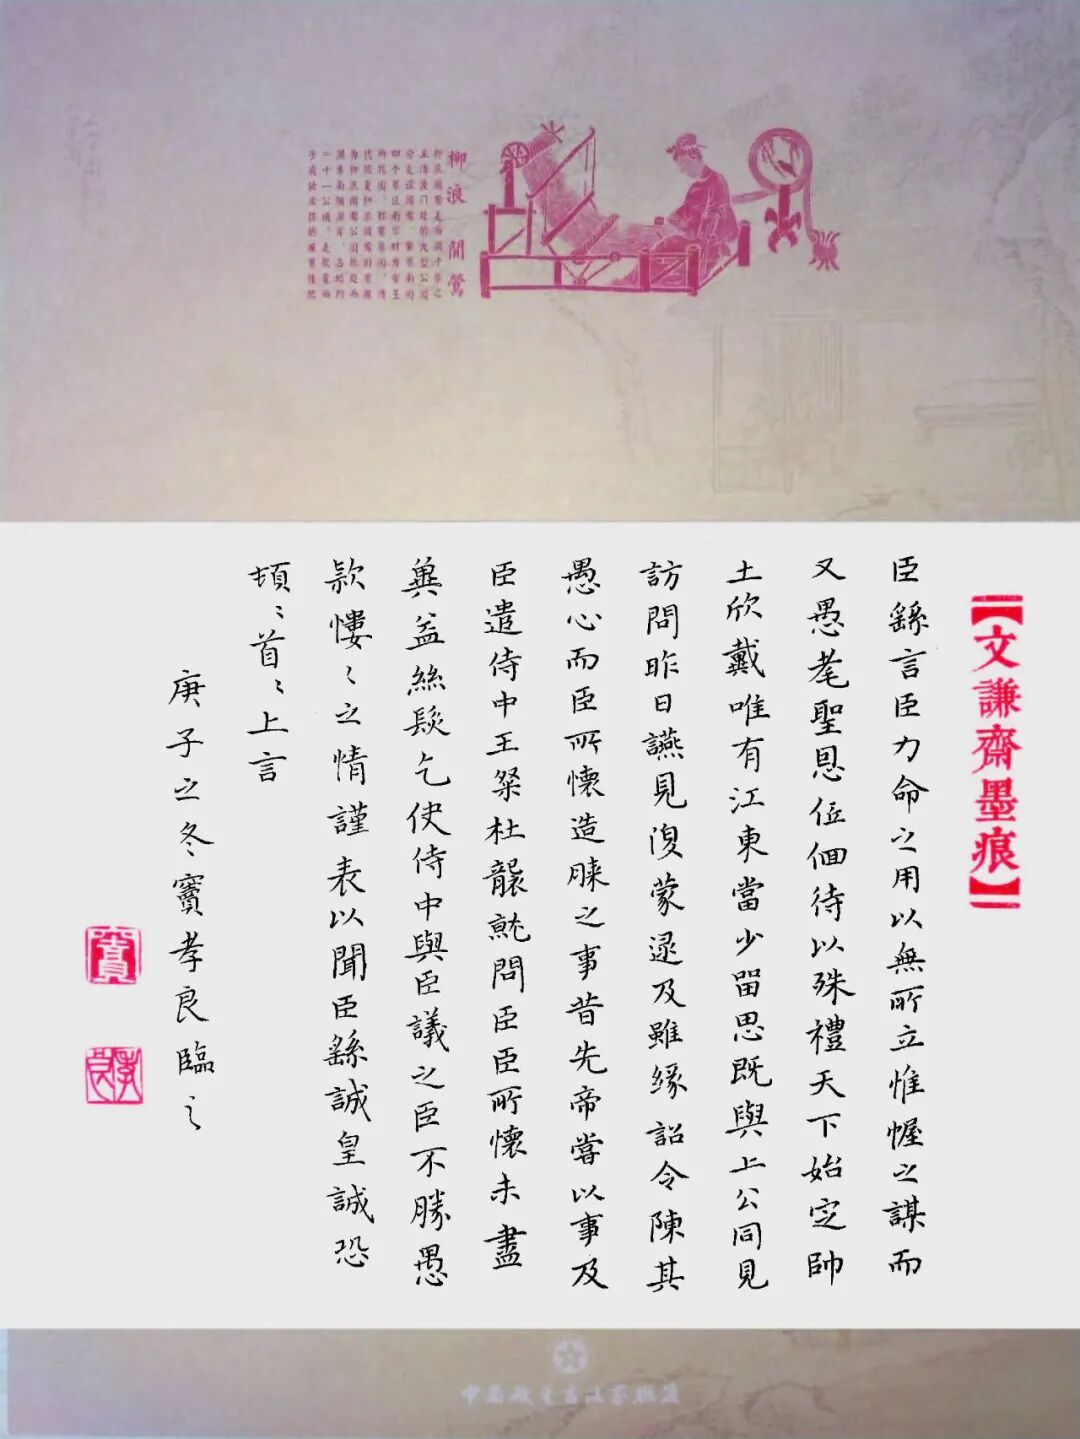 柳浪聞鶯
【文謙齋墨痕】
臣繇言臣力命之用以無所立惟幄之謀而
又愚耄聖恩低佪待以殊禮天下始定帥
土欣戴唯有江東當少留思既與上公同見
訪問昨日讌見復蒙逮及雖緣詔令陳其
愚心而臣所懷造膝之事昔先帝嘗以事及
臣遣侍中王粲杜襲就問臣臣所懷未盡
兾益絲髮乞使侍中與臣議之臣不勝愚
款慺〻之情謹表以聞臣繇誠皇誠恐
頓〻首〻上言
庚子之冬竇孝良臨之
竇
孝良